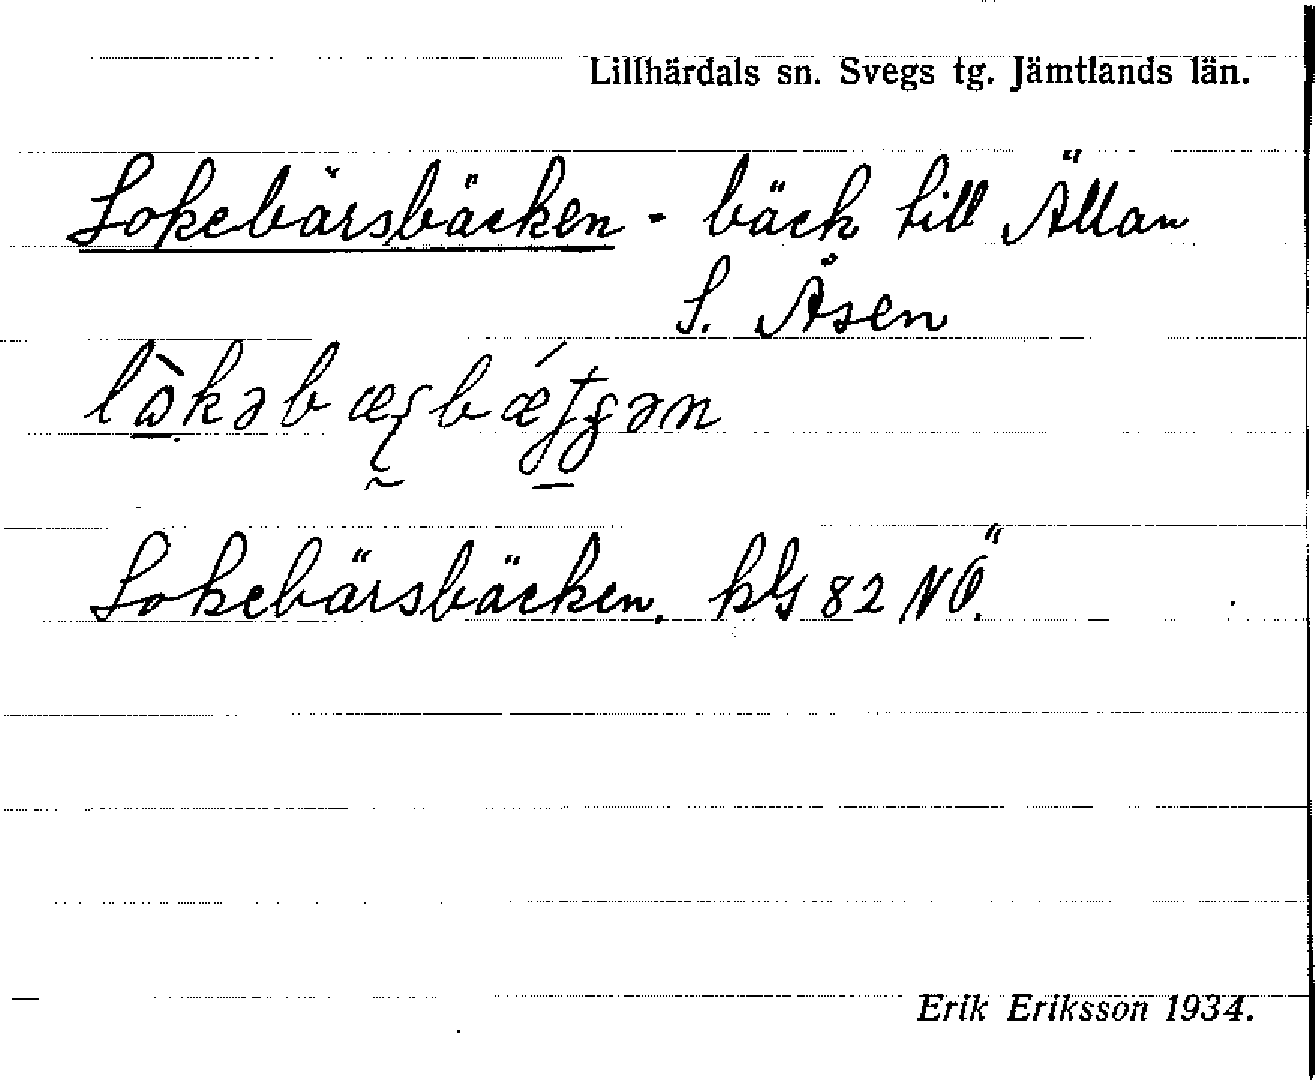 Lillhärdals sn. Svegs tg. Jämtlands län.
Lokebärsbäcken - bäck till Ällan
S. Åsen
Lokebärsbäcken. kbG 82 NÖ.
Erik Eriksson 1934.